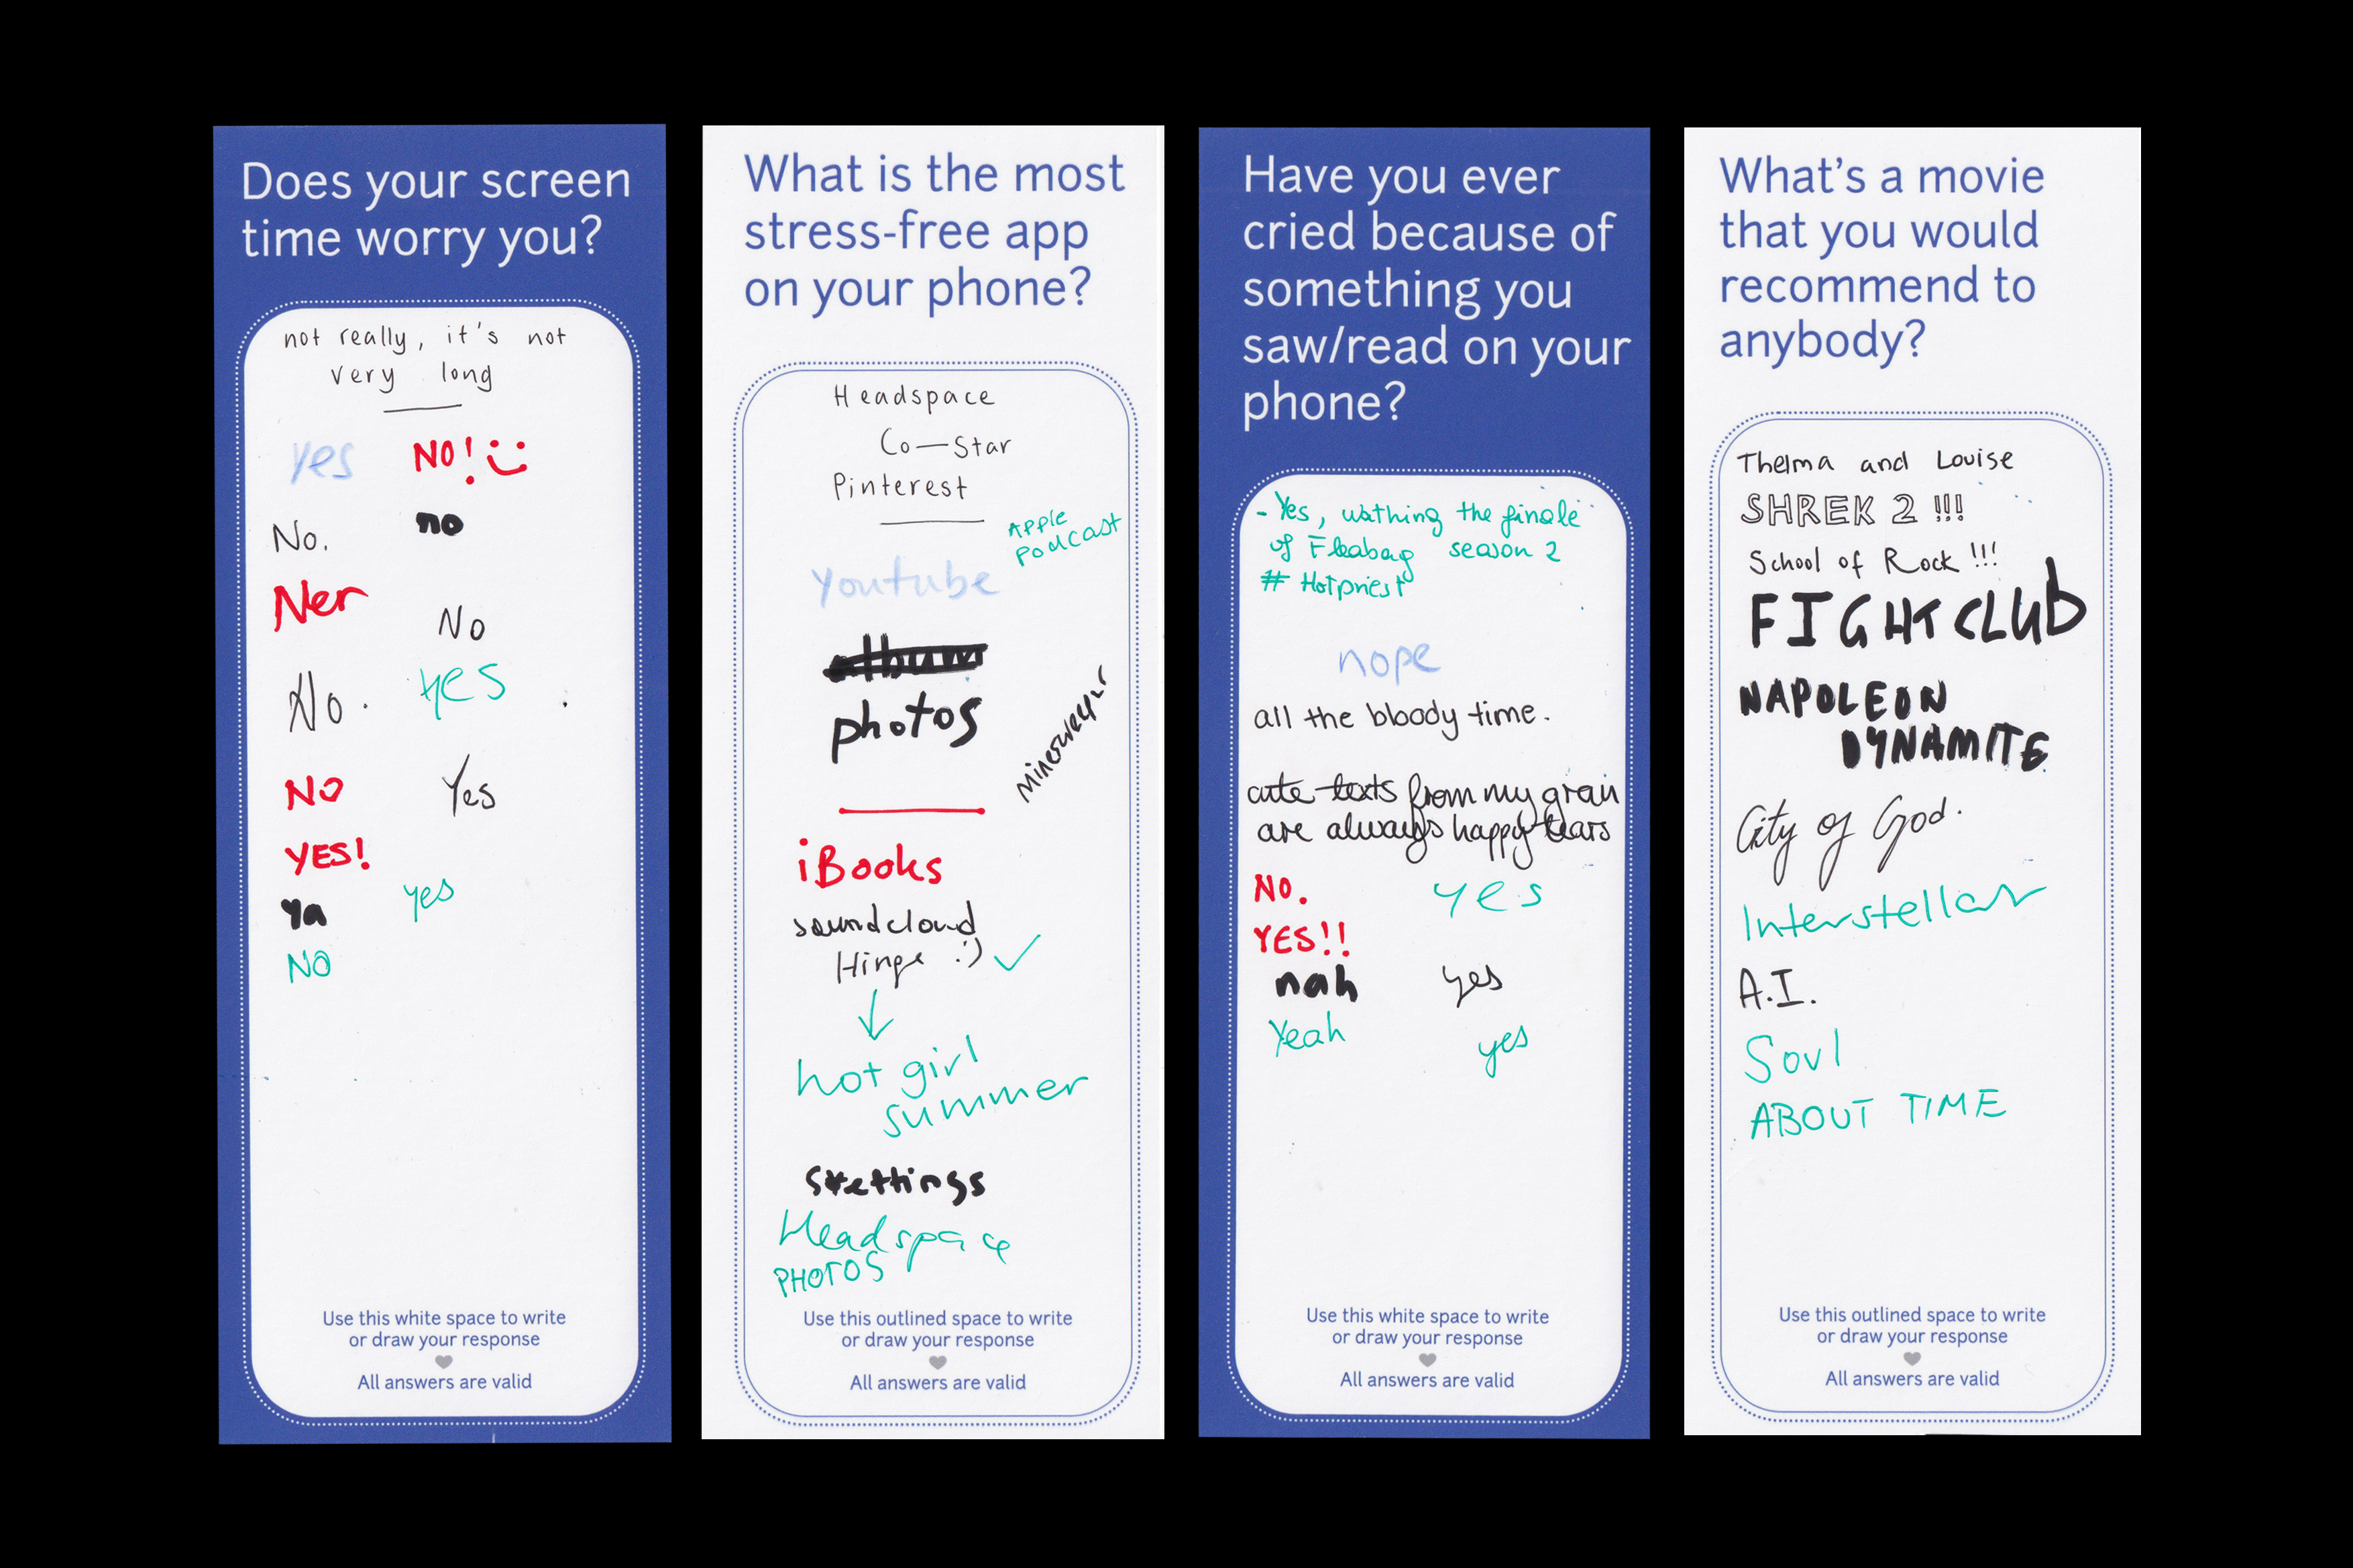 Does your screen
time worry you?
not really, it's not
very long
yes
NO!
No.
no
Ner
No
No.
yes
NO
Yes
YES!
Ya
yes
NO
Use this white space to write
or draw your response
All answers are valid
What is the most
stress-free app
on your phone?
Headspace
Co—Star
Pinterest
Apple
podcast
youtube
album
photos
iBooks
soundcloud
Hinge :)
hot girl
summer
settings
Headspace
PHOTOS
Use this outlined space to write
or draw your response
All answers are valid
Have you ever
cried because of
something you
saw/read on your
phone?
- Yes, wathing the finale
of Fleabag season 2
# Hotpriest
nope
all the bloody time.
cute texts from my gran
are always happy tears
NO.
yes
YES!!
nah
yes
Yeah
yes
Use this white space to write
or draw your response
All answers are valid
What's a movie
that you would
recommend to
anybody?
Thelma and Louise
SHREK 2 !!!
School of Rock !!!
FIGHT CLUb
NAPOLEON
DYNAMITE
City of God.
Interstellar
A.I.
Soul
ABOUT TIME
Use this outlined space to write
or draw your response
All answers are valid